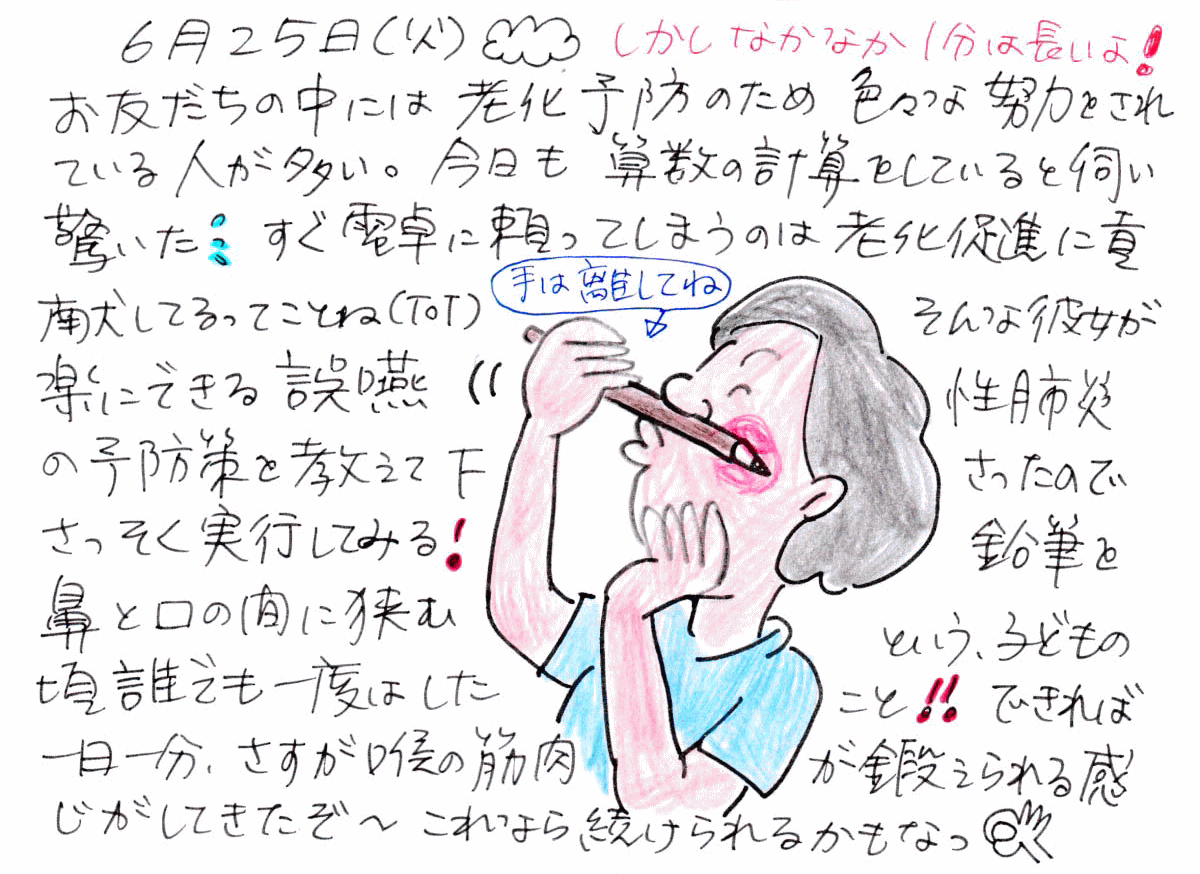 6月25日(火)
しかしなかなか1分は長いよ!
お友だちの中には老化予防のため色々な努力をされ
ている人が多い。今日も算数の計算をしていると伺い
驚いた すぐ電卓に頼ってしまうのは老化促進に貢
手は離してね
献してるってことね(ToT) そんな彼女が
楽にできる誤嚥性肺炎
の予防策を教えて下さったので
さっそく実行してみる! 鉛筆を
鼻と口の間に狭む という、子どもの
頃誰でも一度はしたこと!! できれば
一日一分、さすが喉の筋肉が鍛えられる感
じがしてきたぞ～これなら続けられるかもなっ